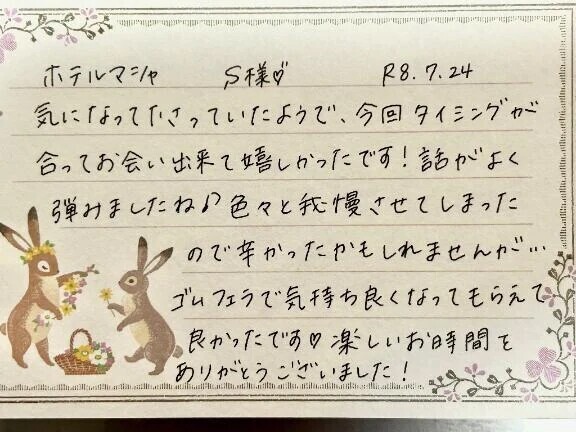 ホテルマシャ S様♡ R8.7.24
気になって下さっていたようで、今回タイミングが
合ってお会い出来て嬉しかったです！話がよく
弾みましたね♪色々と我慢させてしまった
ので辛かったかもしれませんが…
ゴムフェラで気持ち良くなってもらえて
良かったです♡楽しいお時間を
ありがとうございました！